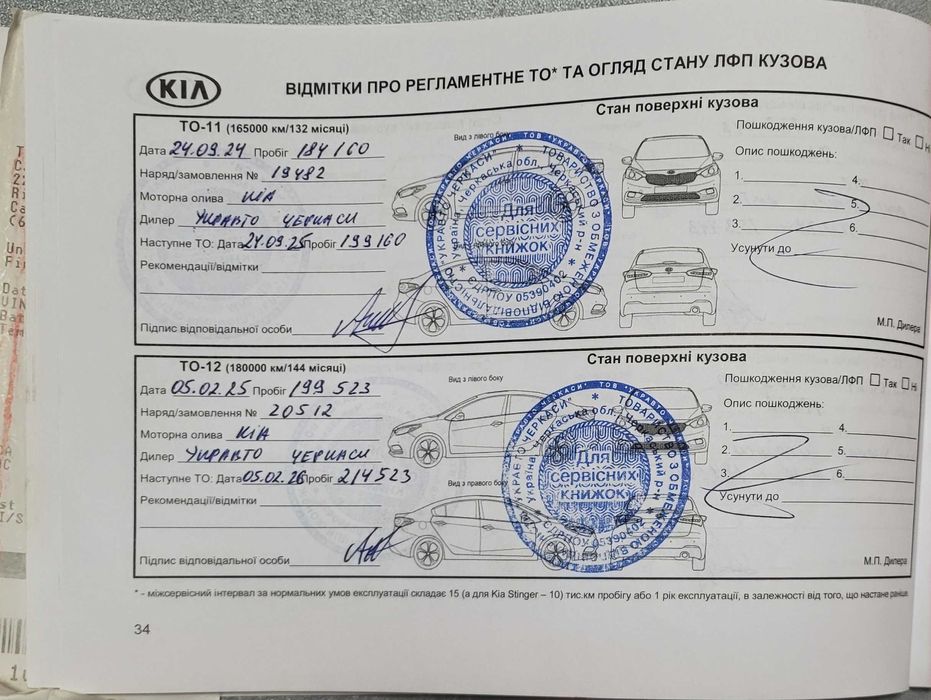 KIA
ВІДМІТКИ ПРО РЕГЛАМЕНТНЕ ТО* ТА ОГЛЯД СТАНУ ЛФП КУЗОВА
ТО-11 (165000 км/132 місяці)
Стан поверхні кузова
Дата 24.09.24 Пробіг 184 160
Вид з лівого боку
Пошкодження кузова/ЛФП Так Ні
Наряд/замовлення № 19482
Опис пошкоджень:
Моторна олива КІА
1. 4.
Дилер УКРАВТО ЧЕРКАСИ
2. 5.
Наступне ТО: Дата 24.09.25 Пробіг 199160
3. 6.
Рекомендації/відмітки
Усунути до
Підпис відповідальної особи
М.П. Дилера
ТОВАРИСТВО З ОБМЕЖЕНОЮ ВІДПОВІДАЛЬНІСТЮ "УКРАВТО ЧЕРКАСИ"
Україна, Черкаська обл., Черкаський р-н
ЄДРПОУ 05390402
Для
сервісних
книжок
ТО-12 (180000 км/144 місяці)
Стан поверхні кузова
Дата 05.02.25 Пробіг 199 523
Вид з лівого боку
Пошкодження кузова/ЛФП Так Ні
Наряд/замовлення № 20512
Опис пошкоджень:
Моторна олива КІА
1. 4.
Дилер УКРАВТО ЧЕРКАСИ
2. 5.
Наступне ТО: Дата 05.02.26 Пробіг 214523
Вид з правого боку
3. 6.
Рекомендації/відмітки
Усунути до
Підпис відповідальної особи
М.П. Дилера
ТОВАРИСТВО З ОБМЕЖЕНОЮ ВІДПОВІДАЛЬНІСТЮ "УКРАВТО ЧЕРКАСИ"
Україна, Черкаська обл., Черкаський р-н
ЄДРПОУ 05390402
Для
сервісних
книжок
* - міжсервісний інтервал за нормальних умов експлуатації складає 15 (а для Kia Stinger – 10) тис.км пробігу або 1 рік експлуатації, в залежності від того, що настане раніше.
34